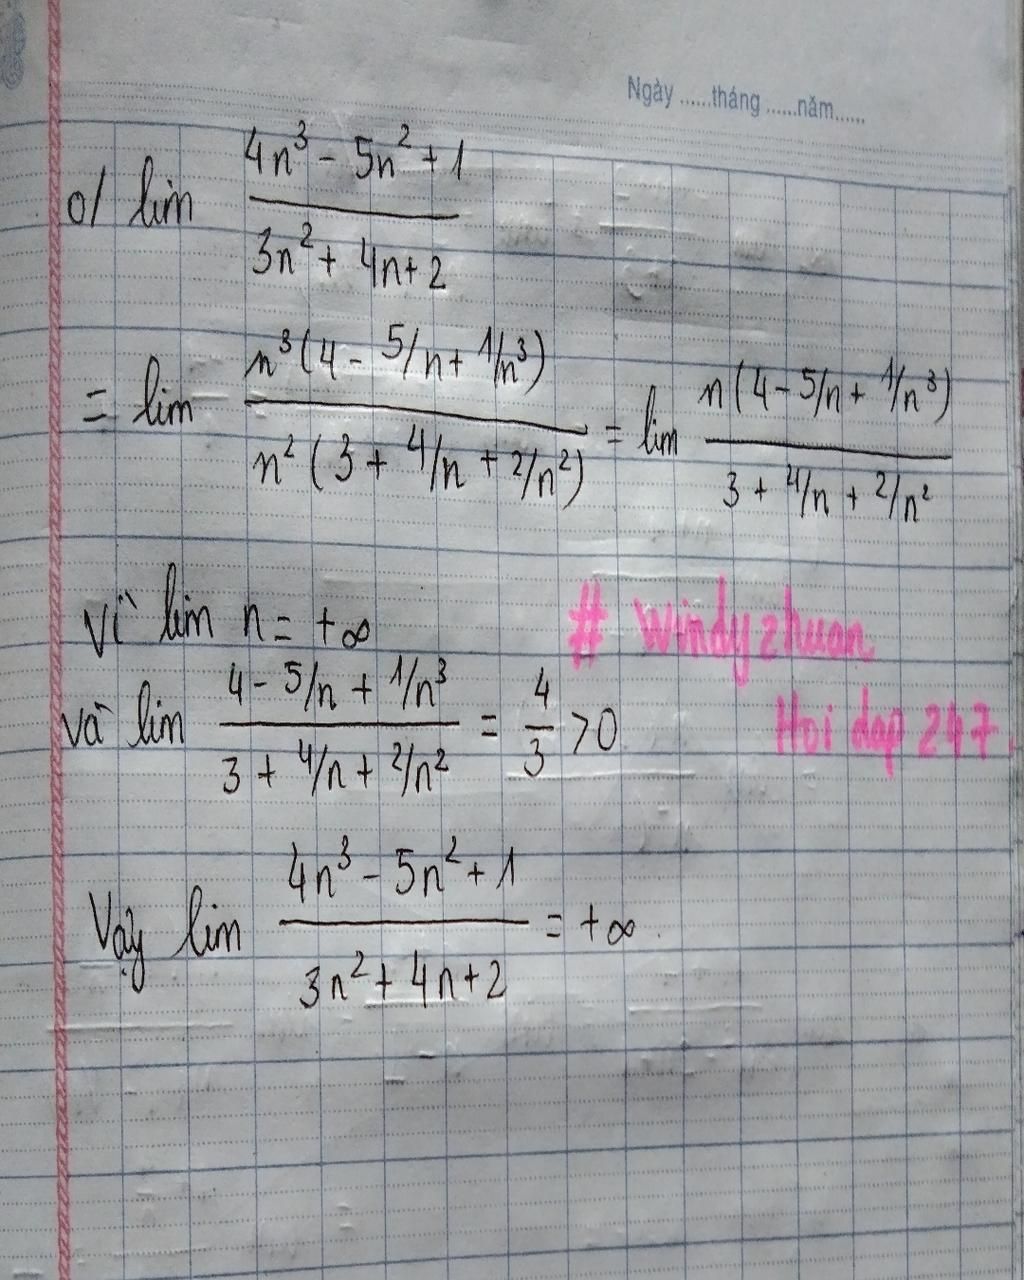 Ngày ......tháng ......năm......
o/ lim (4n³ - 5n² + 1)/(3n² + 4n + 2)
= lim n³(4 - 5/n + 1/n³)/n²(3 + 4/n + 2/n²) = lim n(4 - 5/n + 1/n³)/(3 + 4/n + 2/n²)
Vì lim n = +∞
# windyzhuan
và lim (4 - 5/n + 1/n³)/(3 + 4/n + 2/n²) = 4/3 >0
Hoi dap 247.
Vậy lim (4n³ - 5n² + 1)/(3n² + 4n + 2) = +∞.